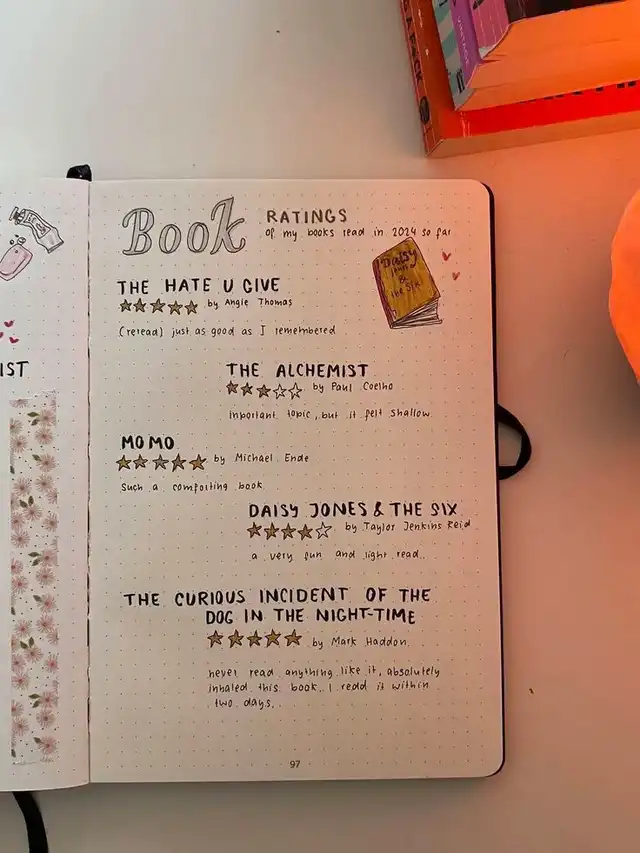 Book RATINGS
of my books read in 2024 so far
DAISY
JONES
&
the SIX
THE HATE U GIVE
by Angie Thomas
(reread) just as good as I remembered
IST
THE ALCHEMIST
by Paul Coelho
important topic, but it felt shallow
MOMO
by Michael Ende
Such a comforting book
DAISY JONES & THE SIX
by Taylor Jenkins Reid
a very fun and light read.
THE CURIOUS INCIDENT OF THE
DOG IN THE NIGHT-TIME
by Mark Haddon
never read anything like it, absolutely
inhaled this book. I read it within
two days.
97